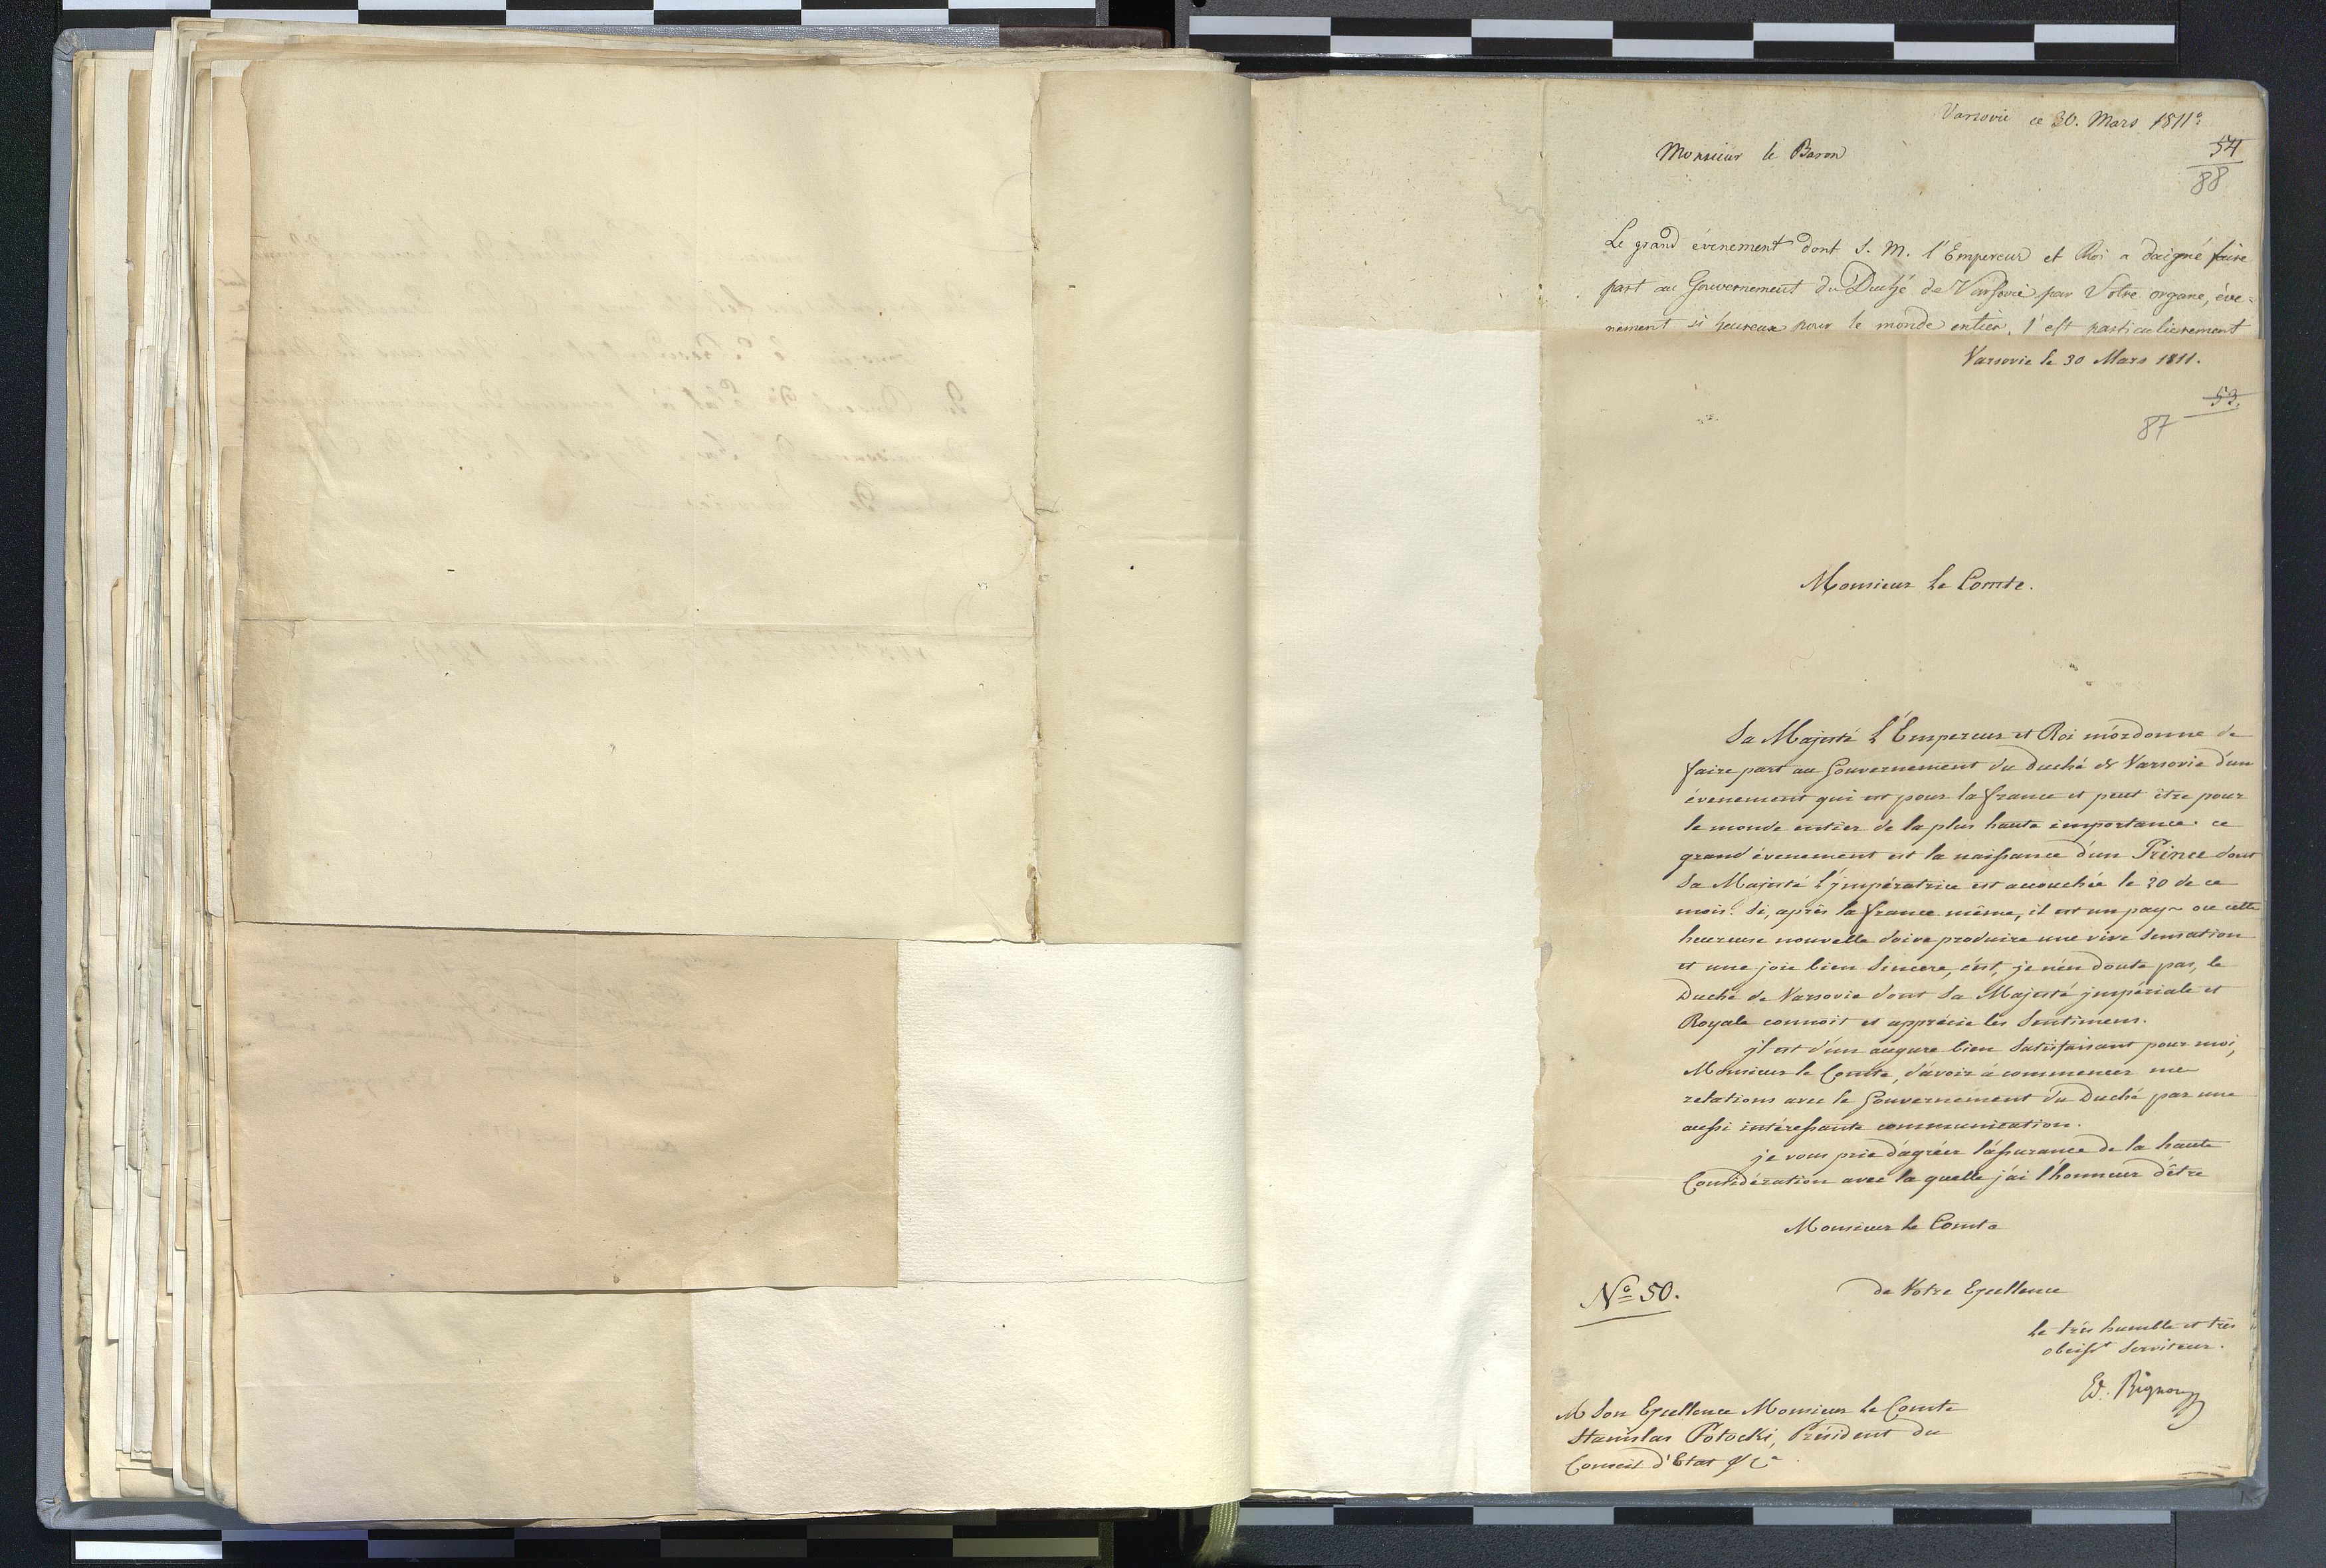 Varsovie ce 30. Mars 1811.
54
88
Monsieur le Baron
Le grand évenement dont S. M. l'Empereur et Roi a daigné faire
part au Gouvernement du Duché de Varsovie par Votre organe, éve=
nement si heureux pour le monde entier, l'est particulierement
Varsovie le 30 Mars 1811.
53.
87
Monsieur le Comte.
Sa Majesté L'Empereur et Roi m'ordonne de
faire part au Gouvernement du Duché de Varsovie d'un
évenement qui est pour la france et peut être pour
le monde entier de la plus haute importance. ce
grand évenement est la naissance d'un Prince dont
Sa Majesté L'jmpératrice est accouchée le 20 de ce
mois. Si, après la france même, il est un pays ou cette
heureuse nouvelle doive produire une vive Sensation
et une joie bien Sincere, c'est, je n'en doute pas, le
Duché de Varsovie dont Sa Majesté jmpériale et
Royale connoit et apprécie les Sentimens.
jl est d'un augure bien Satisfaisant pour moi,
Monsieur le Comte, d'avoir à commencer mes
relations avec le Gouvernement du Duché par une
aussi intéressante communication.
je vous prie d'agréer l'assurance de la haute
Considération avec la quelle j'ai l'honneur d'être
Monsieur le Comte
de Votre Excellence
Le très humble et très
obeisst Serviteur.
Ed. Bignon
No 50.
Son Excellence Monsieur le Comte
Stanislas Potocki, Président du
Conseil d'Etat &ca